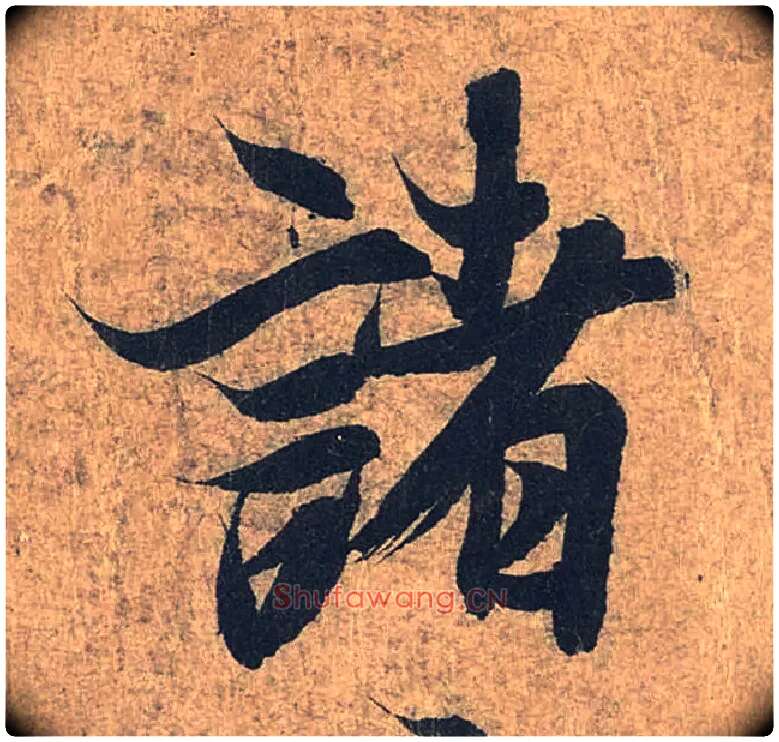 諸
Shufawang.CN